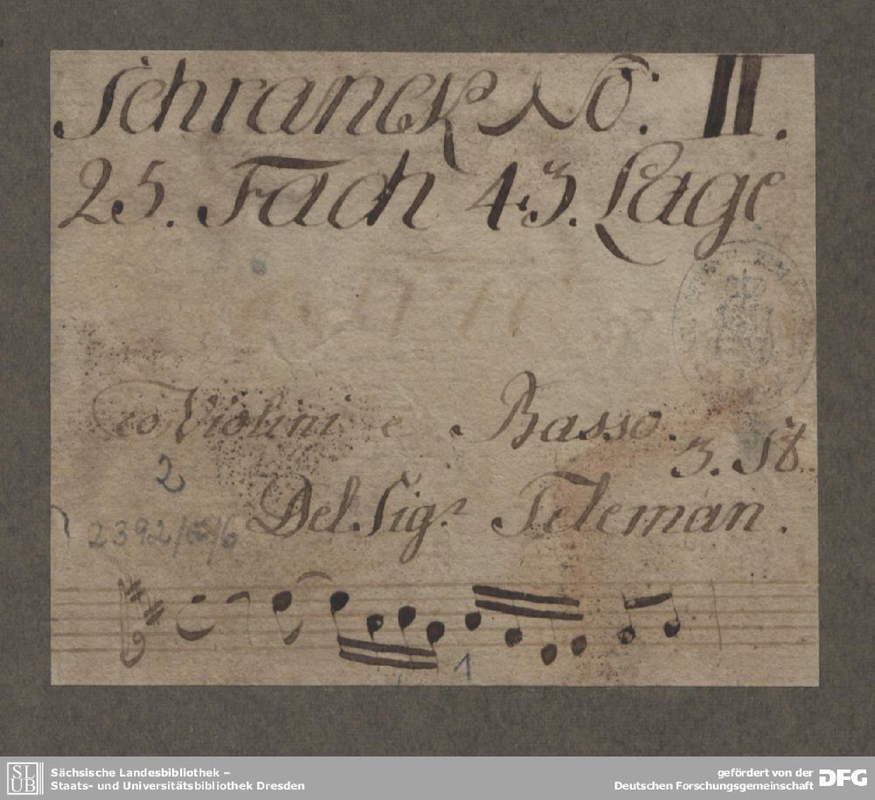 Schranck No: II.
25. Fach 43. Lage
co Violini e Basso.
3. St.
2
Del Sigr. Teleman.
2392/
1
SLUB
Sächsische Landesbibliothek –
Staats- und Universitätsbibliothek Dresden
gefördert von der
Deutschen Forschungsgemeinschaft
DFG